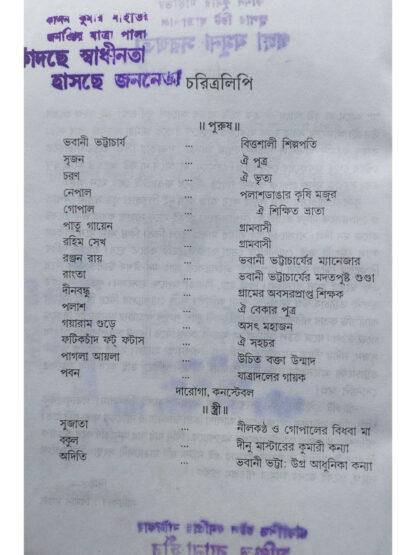 জনপ্রিয় যাত্রা পালা
কাঁদছে স্বাধীনতা
হাসছে জননেতা
চরিত্রলিপি
॥ পুরুষ॥
ভবানী ভট্টাচার্য ... বিত্তশালী শিল্পপতি
সৃজন ... ঐ পুত্র
চরণ ... ঐ ভৃত্য
নেপাল ... পলাশডাঙার কৃষি মজুর
গোপাল ... ঐ শিক্ষিত ভ্রাতা
পাতু গায়েন ... গ্রামবাসী
রহিম সেখ ... গ্রামবাসী
রঞ্জন রায় ... ভবানী ভট্টাচার্যের ম্যানেজার
রাংতা ... ভবানী ভট্টাচার্যের মদতপুষ্ট গুণ্ডা
দীনবন্ধু ... গ্রামের অবসরপ্রাপ্ত শিক্ষক
পলাশ ... ঐ বেকার পুত্র
গয়ারাম গুড়ে ... অসৎ মহাজন
ফটিকচাঁদ ফট্ ফটাস ... ঐ সহচর
পাগলা আয়লা ... উচিত বক্তা উন্মাদ
পবন ... যাত্রাদলের গায়ক
দারোগা, কনস্টেবল
॥ স্ত্রী॥
সুজাতা ... নীলকণ্ঠ ও গোপালের বিধবা মা
বকুল ... দীনু মাস্টারের কুমারী কন্যা
অদিতি ... ভবানী ভট্টা: উগ্র আধুনিকা কন্যা